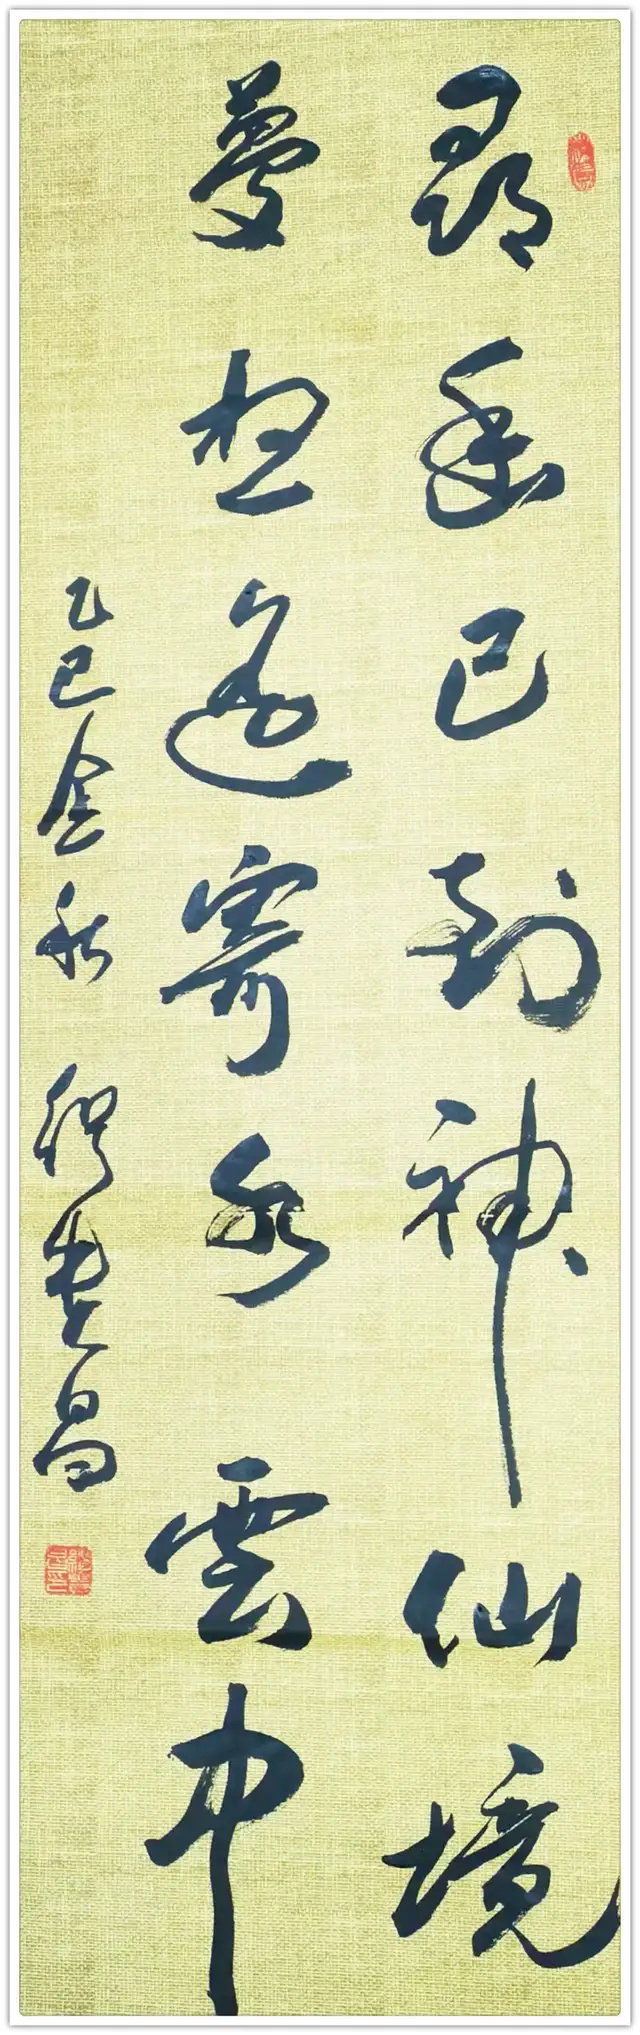 尋已到神仙境
夢想遙寄水雲中
乙巳金秋 昌